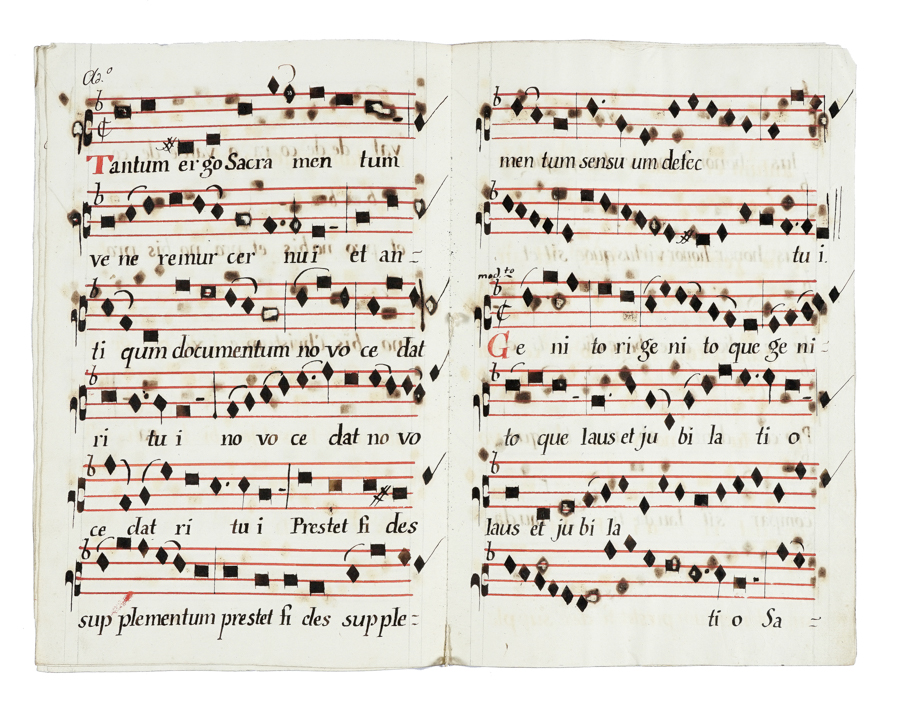 Tantum ergo Sacra men tum
ve ne remur cer nui et an =
ti qum documentum no vo ce dat
ri tu i no vo ce dat no vo
ce dat ri tu i Prestet fi des
sup plementum prestet fi des supple =
men tum sensu um defec
tu i.
mod.to
Ge ni to ri ge ni to que ge ni =
to que laus et ju bi la ti o
laus et ju bi la
ti o Sa =